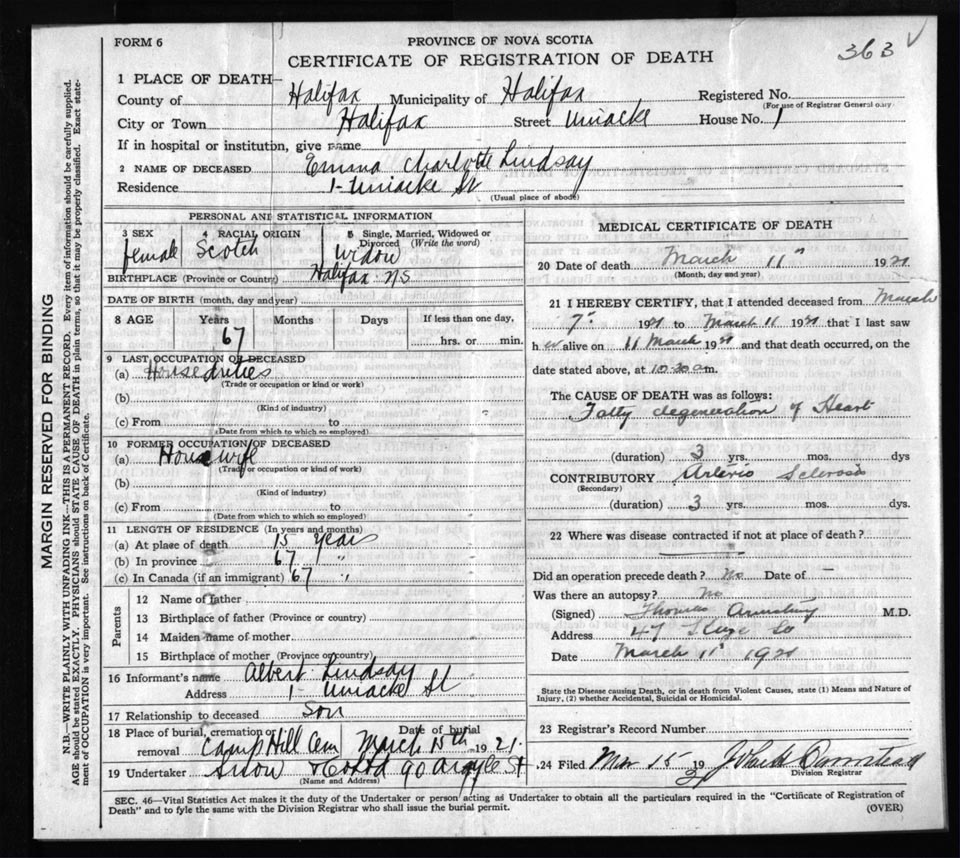 363 √
FORM 6
PROVINCE OF NOVA SCOTIA
CERTIFICATE OF REGISTRATION OF DEATH
1 PLACE OF DEATH—
County of Halifax Municipality of Halifax Registered No.
(For use of Registrar General only
City or Town Halifax Street Uniacke House No. 1
If in hospital or institution, give name
2 NAME OF DECEASED Emma Charlotte Lindsay
Residence 1- Uniacke St
(Usual place of abode)
MARGIN RESERVED FOR BINDING
N.B.—WRITE PLAINLY WITH UNFADING INK—THIS IS A PERMANENT RECORD. Every item of information should be carefully supplied.
AGE should be stated EXACTLY. PHYSICIANS should STATE CAUSE OF DEATH in plain terms, so that it may be properly classified. Exact state-
ment of OCCUPATION is very important. See instructions on back of Certificate.
PERSONAL AND STATISTICAL INFORMATION
3 SEX female
4 RACIAL ORIGIN Scotch
5 Single, Married, Widowed or Divorced (Write the word) Widow
BIRTHPLACE (Province or Country) Halifax NS
DATE OF BIRTH (month, day and year)
8 AGE Years 67 Months Days If less than one day,
hrs. or min.
9 LAST OCCUPATION OF DECEASED
(a) House duties
(Trade or occupation or kind or work)
(b)
(Kind of industry)
(c) From to
(Date from which to which so employed)
10 FORMER OCCUPATION OF DECEASED
(a) House wife
(Trade or occupation or kind of work)
(b)
(Kind of industry)
(c) From to
(Date from which to which so employed)
11 LENGTH OF RESIDENCE (In years and months)
(a) At place of death 15 years
(b) In province 67 "
(c) In Canada (if an immigrant) 67 "
Parents
12 Name of father
13 Birthplace of father (Province or country)
14 Maiden name of mother
15 Birthplace of mother (Province or country)
16 Informant's name Albert Lindsay
Address 1- Uniacke St
17 Relationship to deceased Son
18 Place of burial, cremation or removal Camp Hill Cem
Date of burial March 15th 1921.
19 Undertaker Snow & Co Ltd 90 Argyle St
(Name and Address)
MEDICAL CERTIFICATE OF DEATH
20 Date of death March 11" 1921
(Month, day and year)
21 I HEREBY CERTIFY, that I attended deceased from March
7" 1921 to March 11 1921 that I last saw
her alive on 11 March 1921 and that death occurred, on the
date stated above, at 10.30 a.m.
The CAUSE OF DEATH was as follows:
Fatty degeneration of Heart
(duration) 3 yrs. mos. dys
CONTRIBUTORY Arterio Sclerosis
(Secondary)
(duration) 3 yrs. mos. dys.
22 Where was disease contracted if not at place of death?
Did an operation precede death? No Date of —
Was there an autopsy? No
(Signed) Thomas M.D.
Address 47
Date March 11" 1921
State the Disease causing Death, or in death from Violent Causes, state (1) Means and Nature of
Injury, (2) whether Accidental, Suicidal or Homicidal.
23 Registrar's Record Number
24 Filed Mar 15 1921
Division Registrar
SEC. 46—Vital Statistics Act makes it the duty of the Undertaker or person acting as Undertaker to obtain all the particulars required in the "Certificate of Registration of
Death" and to fyle the same with the Division Registrar who shall issue the burial permit.
(OVER)